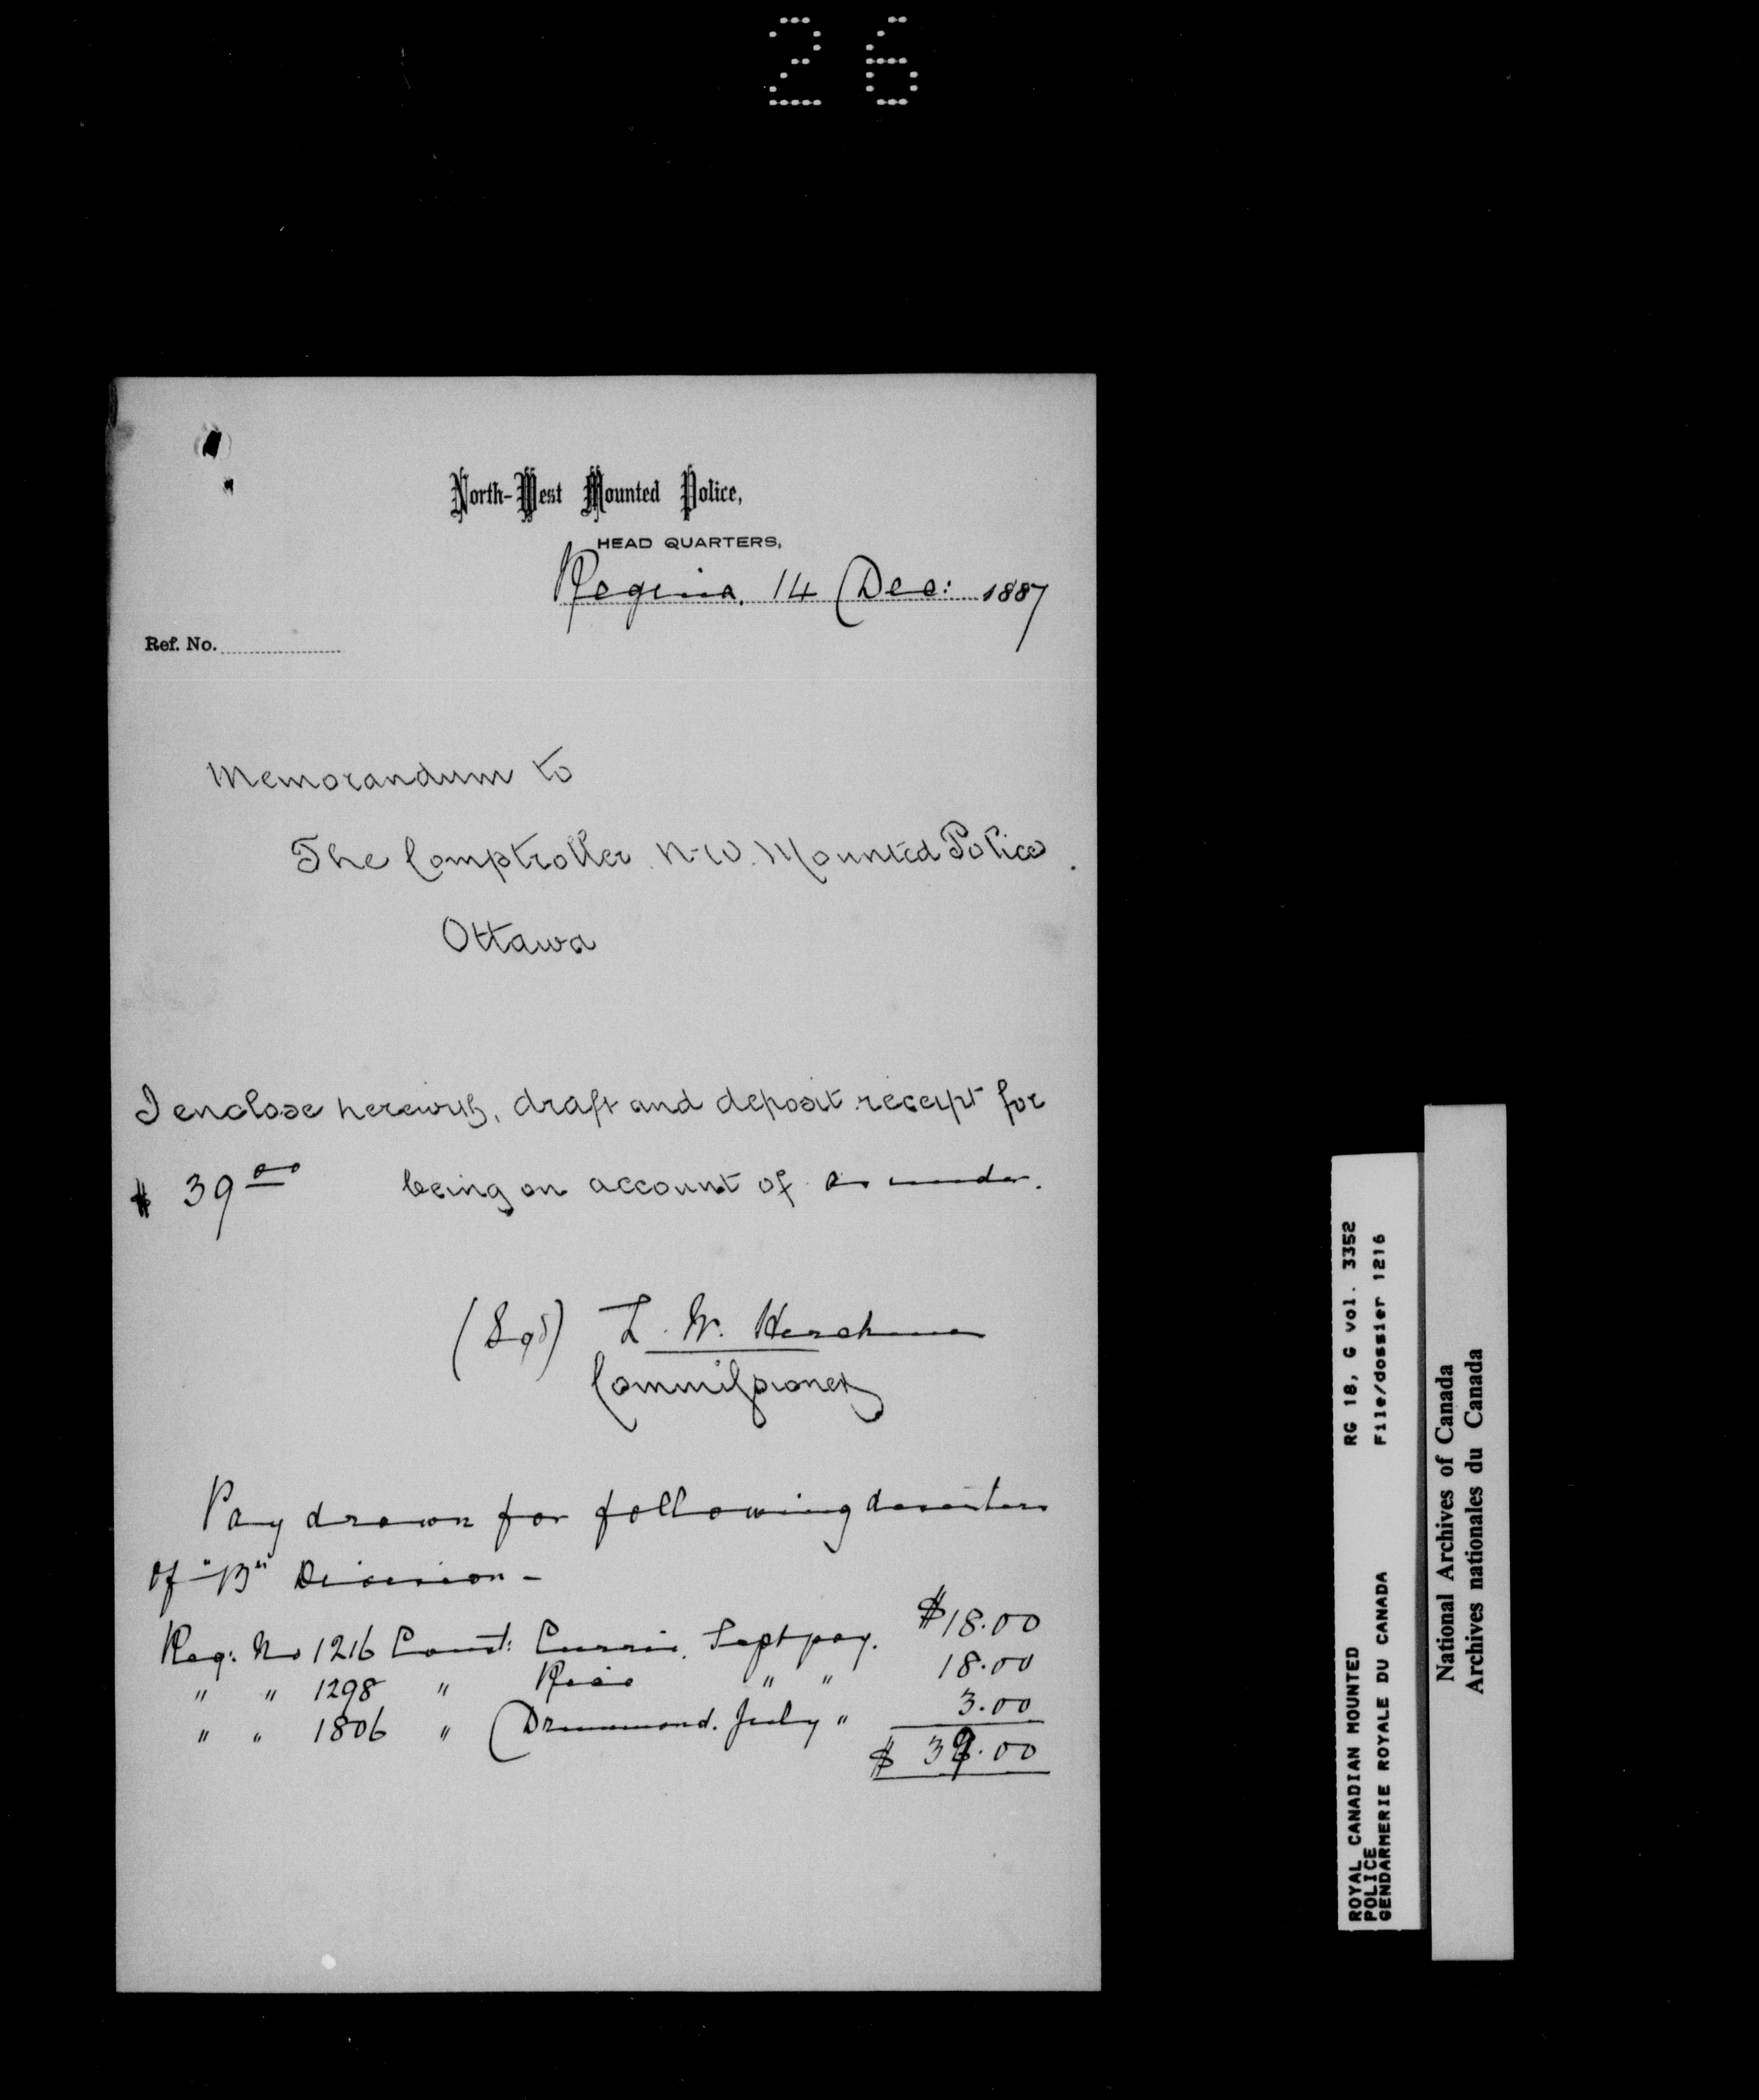 26
North-West Mounted Police,
HEAD QUARTERS,
Regina. 14 Dec: 1887
Ref. No.
Memorandum to
The Comptroller N.W. Mounted Police.
Ottawa
I enclose herewith, draft and deposit receipt for
$ 39 00 being on account of as under.
(Sgd) L. W. Herchmer
Commissioner
Pay drawn for following deserters
of "B" Division -
Reg: No 1216 Const: Currie. Sept pay. $18.00
" " 1298 " " " 18.00
" " 1806 " Drummond. July " 3.00
$ 39.00
ROYAL CANADIAN MOUNTED RG 18, G vol. 3352
POLICE File/dossier 1216
GENDARMERIE ROYALE DU CANADA
National Archives of Canada
Archives nationales du Canada